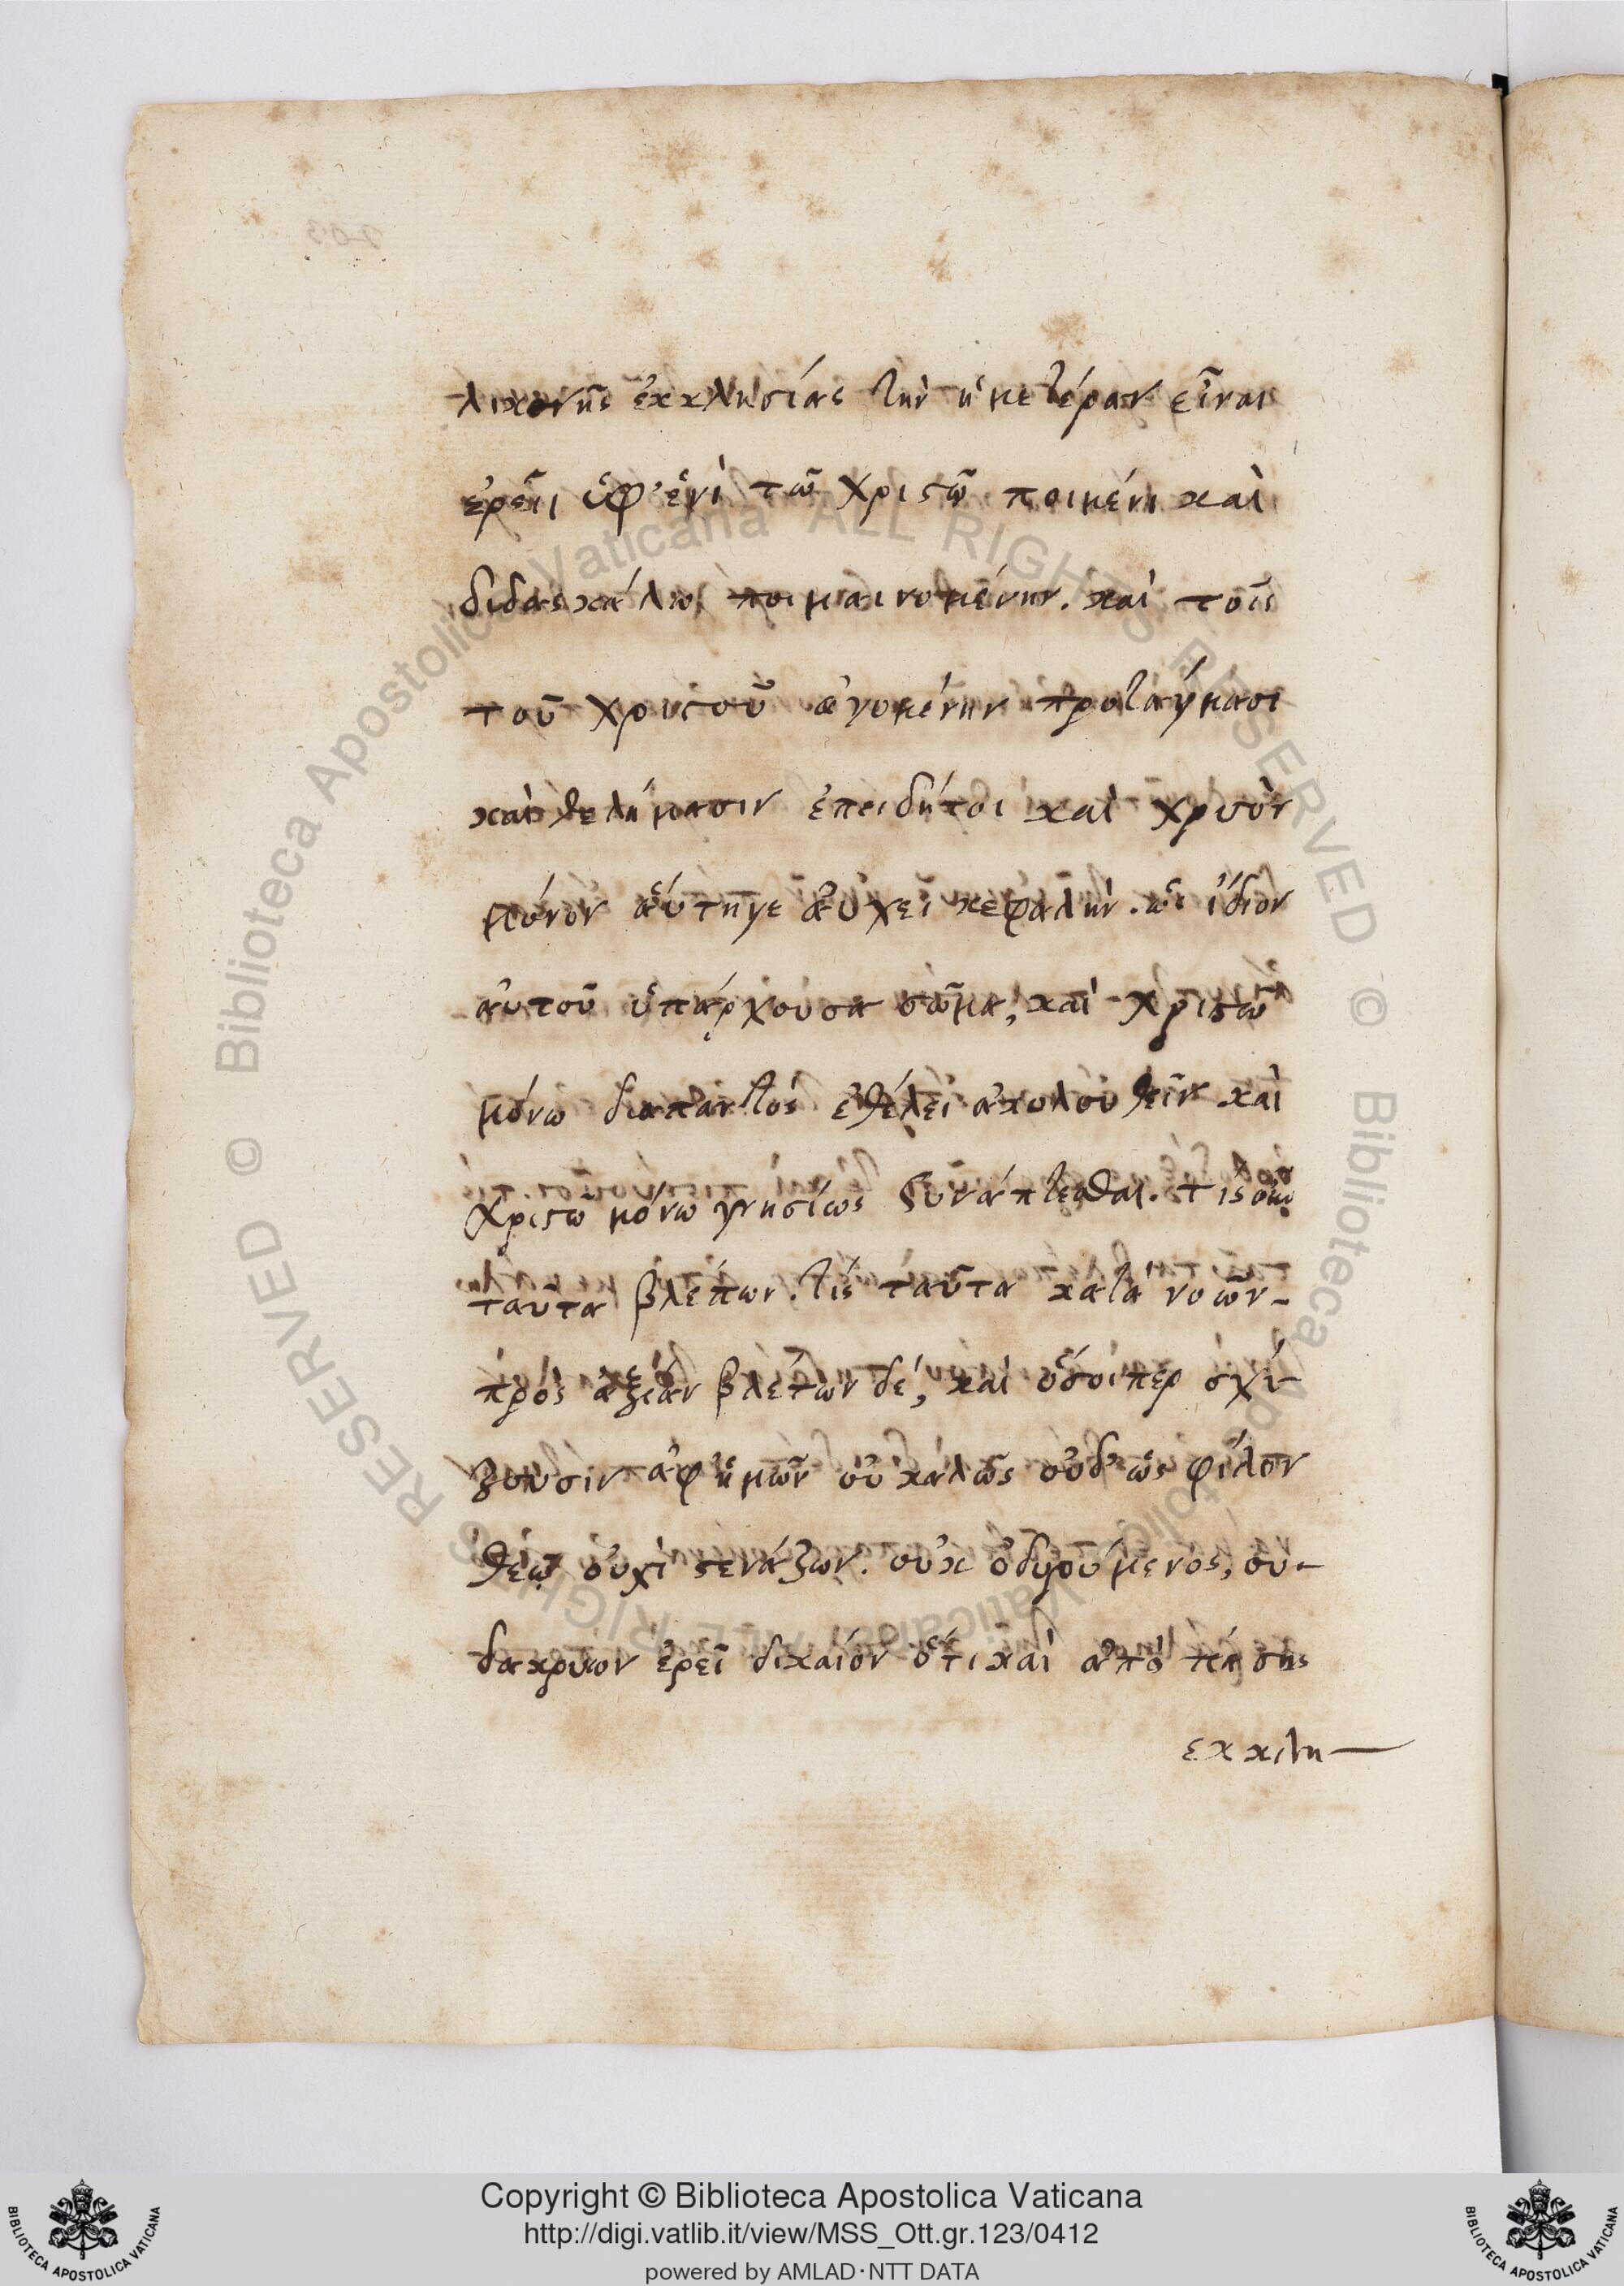 λικωνῆς ἐκκλησίας τὴν ἡμετέραν εἶναι
ἐρεῖ ὑφ' ἑνὶ τῶ χριστῶ ποιμένι καὶ
διδασκάλω ποιμαινομένην. καὶ τοῖς
τοῦ χριστοῦ ἀγομένην προστάγμασι
καὶ θελήμασιν ἐπειδήτοι καὶ χρυσὸν
μόνον αὕτηγε αὐχεῖ κεφαλήν. ὡς ἴδιον
αὐτοῦ ὑπάρχουσα σῶμα, καὶ χριστῶ
μόνω διαπαντὸς ἐθέλει ἀκολουθεῖν καὶ
χριστῶ μόνω γνησίως συνάπτεσθαι. τίς οὖν
ταῦτα βλέπων. τίς ταῦτα κατανοῶν-
πρὸς ἀξίαν βλέπων δέ, καὶ ὅσοιπερ σχί-
ζουσιν ἀφ' ἡμῶν οὐ καλῶς οὐδ' ὡς φίλον
θεῶ οὐχὶ στενάζων. οὐκ ὀδυρούμενος, οὐ-
δακρύων ἐρεῖ δικαίον ὅτι καὶ ἀπὸ πάσης
εκκλη-
Copyright © Biblioteca Apostolica Vaticana
http://digi.vatlib.it/view/MSS_Ott.gr.123/0412
powered by AMLAD·NTT DATA